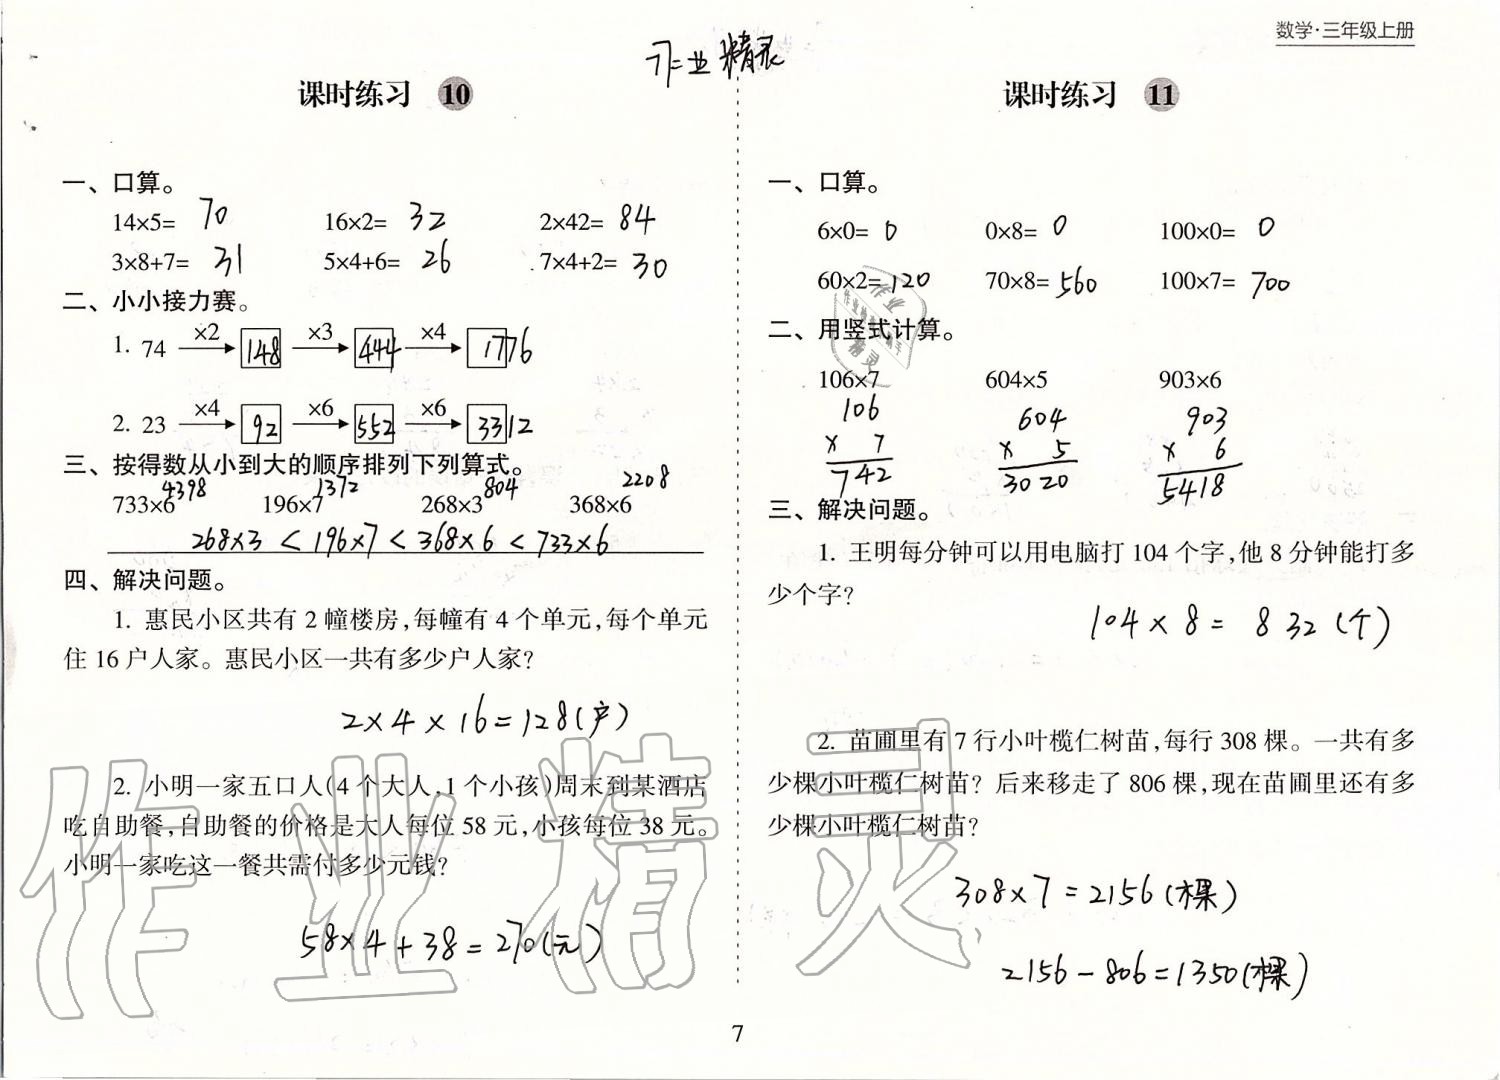 数学·三年级上册
作业精灵
课时练习 10
一、口算。
14×5= 70 16×2= 32 2×42= 84
3×8+7= 31 5×4+6= 26 7×4+2= 30
二、小小接力赛。
1. 74 ×2 148 ×3 444 ×4 1776
2. 23 ×4 92 ×6 552 ×6 3312
三、按得数从小到大的顺序排列下列算式。
4398 1372 804 2208
733×6 196×7 268×3 368×6
268×3 < 196×7 < 368×6 < 733×6
四、解决问题。
1. 惠民小区共有 2 幢楼房,每幢有 4 个单元,每个单元
住 16 户人家。惠民小区一共有多少户人家?
2×4×16=128(户)
2. 小明一家五口人(4 个大人,1 个小孩)周末到某酒店
吃自助餐,自助餐的价格是大人每位 58 元,小孩每位 38 元。
小明一家吃这一餐共需付多少元钱?
58×4+38=270(元)
课时练习 11
一、口算。
6×0= 0 0×8= 0 100×0= 0
60×2= 120 70×8= 560 100×7= 700
二、用竖式计算。
106×7 604×5 903×6
106 604 903
× 7 × 5 × 6
742 3020 5418
三、解决问题。
1. 王明每分钟可以用电脑打 104 个字,他 8 分钟能打多
少个字?
104×8= 832(个)
2. 苗圃里有 7 行小叶榄仁树苗,每行 308 棵。一共有多
少棵小叶榄仁树苗? 后来移走了 806 棵,现在苗圃里还有多
少棵小叶榄仁树苗?
308×7=2156(棵)
2156-806=1350(棵)
作业精灵
7